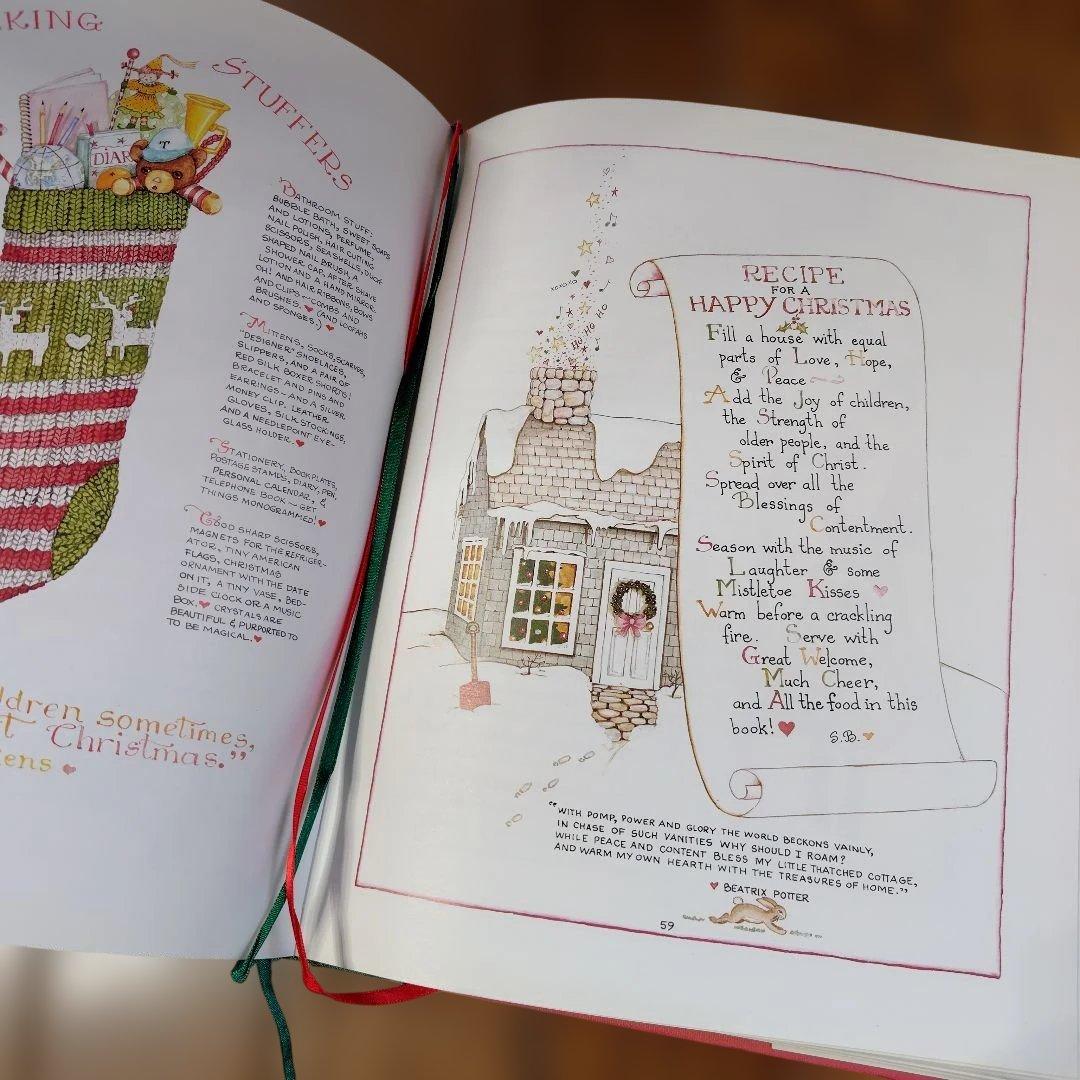 KING
STUFFERS
DIAR
T
BATHROOM STUFF:
BUBBLE BATH, SWEET SOAPS
AND LOTIONS, PERFUME,
NAIL POLISH, HAIR CUTTING
SCISSORS, SEA SHELLS, DUCK
SHAPED NAIL BRUSH, A
SHOWER CAP, AFTER SHAVE
LOTION AND A HAND MIRROR.
OH! AND HAIR RIBBONS, BOWS
AND CLIPS - COMBS AND
BRUSHES. ♥ (AND LOOFAHS
AND SPONGES.) ♥
MITTENS, SOCKS, SCARVES,
"DESIGNER" SHOELACES,
SLIPPERS, AND A PAIR OF
RED SILK BOXER SHORTS!
BRACELET AND PINS AND
EARRINGS - AND A SILVER
MONEY CLIP. LEATHER
GLOVES, SILK STOCKINGS,
AND A NEEDLEPOINT EYE-
GLASS HOLDER. ♥
STATIONERY, BOOKPLATES,
POSTAGE STAMPS, DIARY, PEN,
PERSONAL CALENDAR, &
TELEPHONE BOOK - GET
THINGS MONOGRAMMED! ♥
GOOD SHARP SCISSORS,
MAGNETS FOR THE REFRIGER-
ATOR, TINY AMERICAN
FLAGS, CHRISTMAS
ORNAMENT WITH THE DATE
ON IT, A TINY VASE, BED-
SIDE CLOCK OR A MUSIC
BOX. ♥ CRYSTALS ARE
BEAUTIFUL & PURPORTED TO
TO BE MAGICAL. ♥
ldren sometimes,
t Christmas."
ens ♥
XOXOXO
HO HO HO
RECIPE
FOR A
HAPPY CHRISTMAS
Fill a house with equal
parts of Love, Hope,
& Peace
Add the Joy of children,
the Strength of
older people, and the
Spirit of Christ.
Spread over all the
Blessings of
Contentment.
Season with the music of
Laughter & some
Mistletoe Kisses ♥
Warm before a crackling
fire. Serve with
Great Welcome,
Much Cheer,
and All the food in this
book! ♥ S.B. ♥
"WITH POMP, POWER AND GLORY THE WORLD BECKONS VAINLY,
IN CHASE OF SUCH VANITIES WHY SHOULD I ROAM?
WHILE PEACE AND CONTENT BLESS MY LITTLE THATCHED COTTAGE,
AND WARM MY OWN HEARTH WITH THE TREASURES OF HOME."
♥ BEATRIX POTTER
59